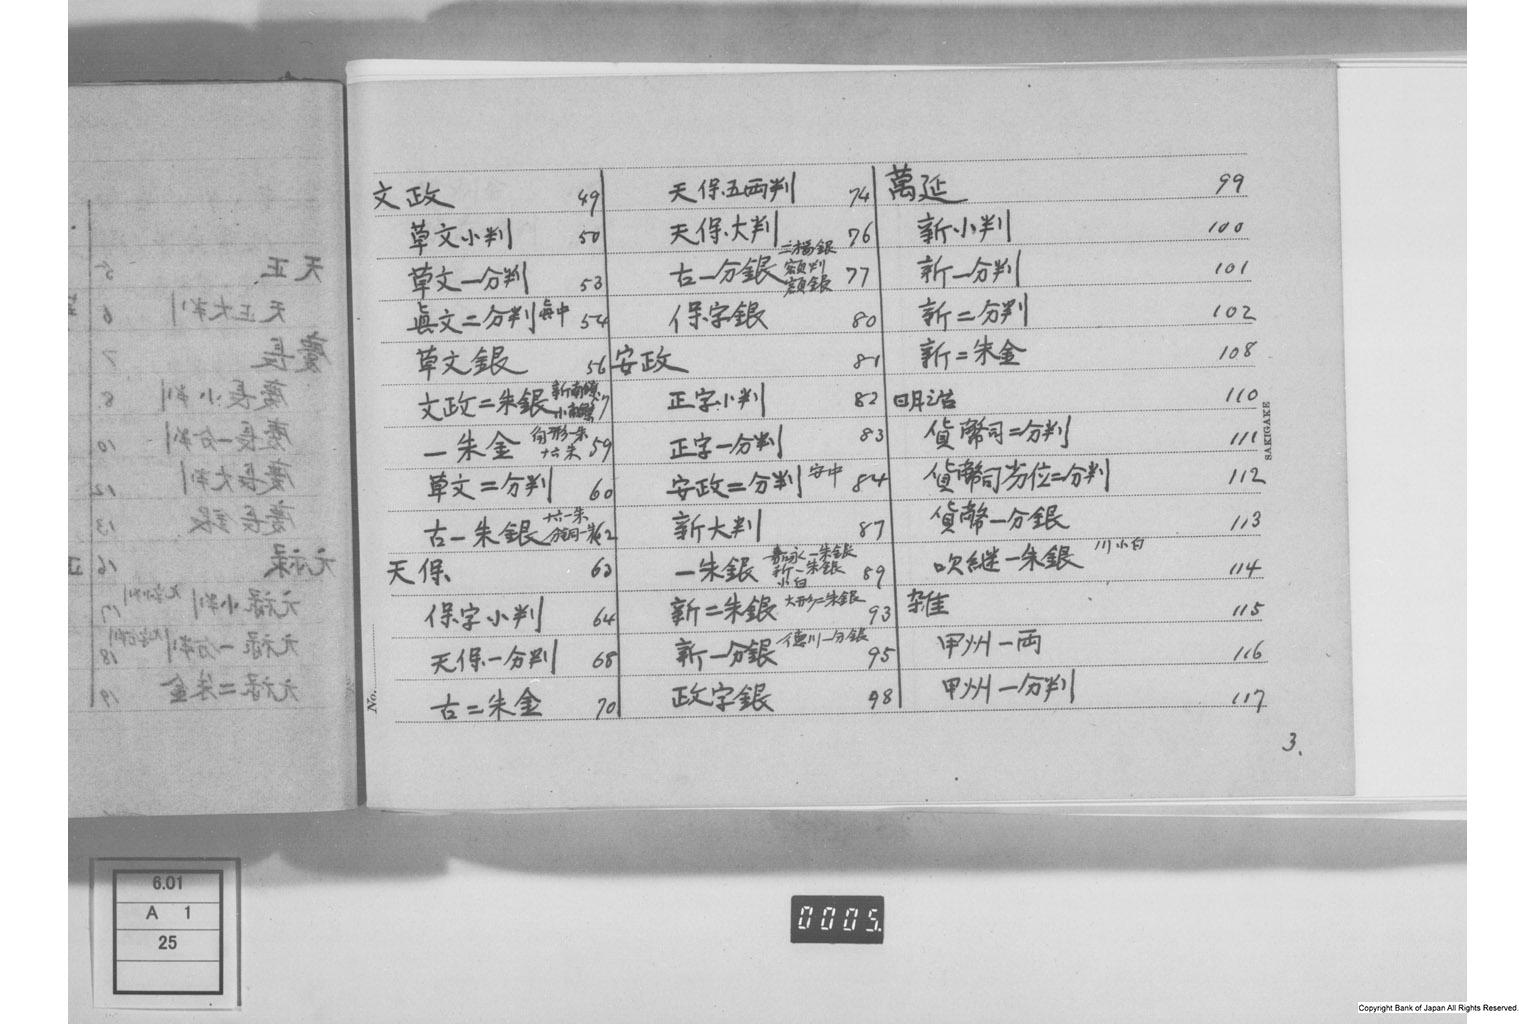 文政 49
草文小判 50
草文一分判 53
眞文二分判 54
草文銀 56
文政二朱銀 新南鐐 小南鐐 57
一朱金 角形一朱 十六朱 59
草文二分判 60
古一朱銀 62
天保 63
保字小判 64
天保一分判 68
古二朱金 70
天保五両判 74
天保大判 76
古一分銀 額判 額銀 77
保字銀 80
安政 81
正字小判 82
正字一分判 83
安政二分判 安中 84
新大判 87
一朱銀 嘉永一朱銀 新一朱銀 小白 89
新二朱銀 大形二朱銀 93
新一分銀 徳川一分銀 95
政字銀 98
萬延 99
新小判 100
新一分判 101
新二分判 102
新二朱金 108
明治 110
貨幣司二分判 111
貨幣司劣位二分判 112
貨幣一分銀 113
吹継一朱銀 川小白 114
雑 115
甲州一両 116
甲州一分判 117
No.
SAKIGAKE
3.
天正 5
天正大判 6
慶長 7
慶長小判 8
慶長一分判 10
慶長大判 12
慶長銀 13
元禄 16
元禄小判 17
元禄一分判 18
元禄二朱金 19
6.01
A 1
25
0005
Copyright Bank of Japan All Rights Reserved.